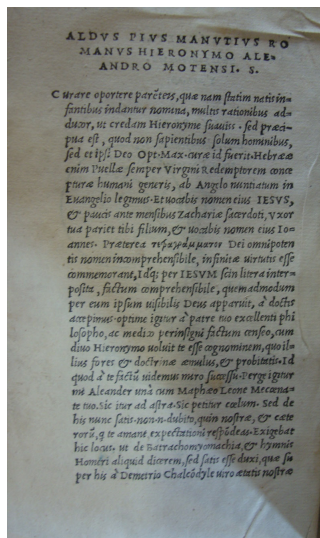 ALDVS PIVS MANVTIVS RO
MANVS HIERONYMO ALE-
ANDRO MOTENSI. S.
Curare oportere parẽteis, quæ nam statim natis in=
fantibus indantur nomina, multis rationibus ad=
ducor, ut credam Hieronyme suauiss. sed præci=
pua est, quod non sapientibus solum hominibus,
sed et ipsi Deo Opt. Max. curæ id fuerit. Hebrææ
enim Puellæ semper Virgini Redemptorem conce
pturæ humani generis, ab Angelo nuntiatum in
Euangelio legimus. Et uocabis nomen eius IESVS,
& paucis ante mensibus Zachariæ sacerdoti, Vxor
tua pariet tibi filium, & uocabis nomen eius Io=
annes. Præterea τετραγράμματον Dei omnipoten
tis nomen incomprehensibile, infinitæ uirtutis esse
commemorant, Idq; per IESVM scin litera inter=
posita, factum comprehensibile, quemadmodum
per eum ipsum uisibilis Deus apparuit, à doctis
accepimus. optime igitur à patre tuo excellenti phi
losopho, ac medico perinsigni factum censeo, cum
diuo Hieronymo uoluit te esse cognominem, quo il=
lius fores & doctrinæ æmulus, & probitatis. Id
quod à te factũ uidemus miro successu. Perge igitur
mi Aleander unà cum Maphæo Leone Mecœna=
te tuo. Sic itur ad astra. Sic petitur cœlum. Sed de
his nunc satis. non n. dubito, quin nostræ, & cæte
rorũ, q te amant, expectationi respõdeas. Exigebat
hic locus, ut de Batrachomyomachia, & hymnis
Homeri aliquid dicerem, sed satis esse duxi, quæ su
per his à Demetrio Chalcõdyle uiro ætatis nostræ